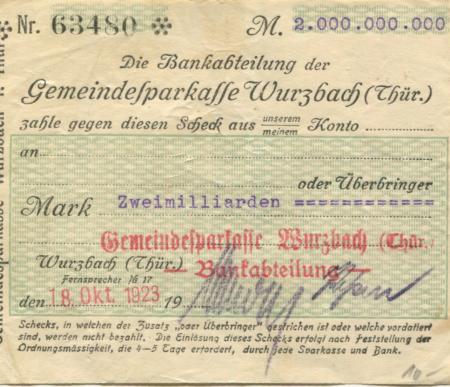 Nr. 63480 M. 2.000.000.000
Die Bankabteilung der
Gemeindesparkasse Wurzbach (Thür.)
zahle gegen diesen Scheck aus unserem meinem Konto
an
oder Überbringer
Mark Zweimilliarden
Gemeindesparkasse Wurzbach (Thür.
Bankabteilung
Wurzbach (Thür.)
Fernsprecher № 17
den 18. Okt. 1923 19
Schecks, in welchen der Zusatz „oder Überbringer" gestrichen ist oder welche vordatiert
sind, werden nicht bezahlt. Die Einlösung dieses Schecks erfolgt nach Feststellung der
Ordnungsmässigkeit, die 4-5 Tage erfordert, durch jede Sparkasse und Bank.
10-